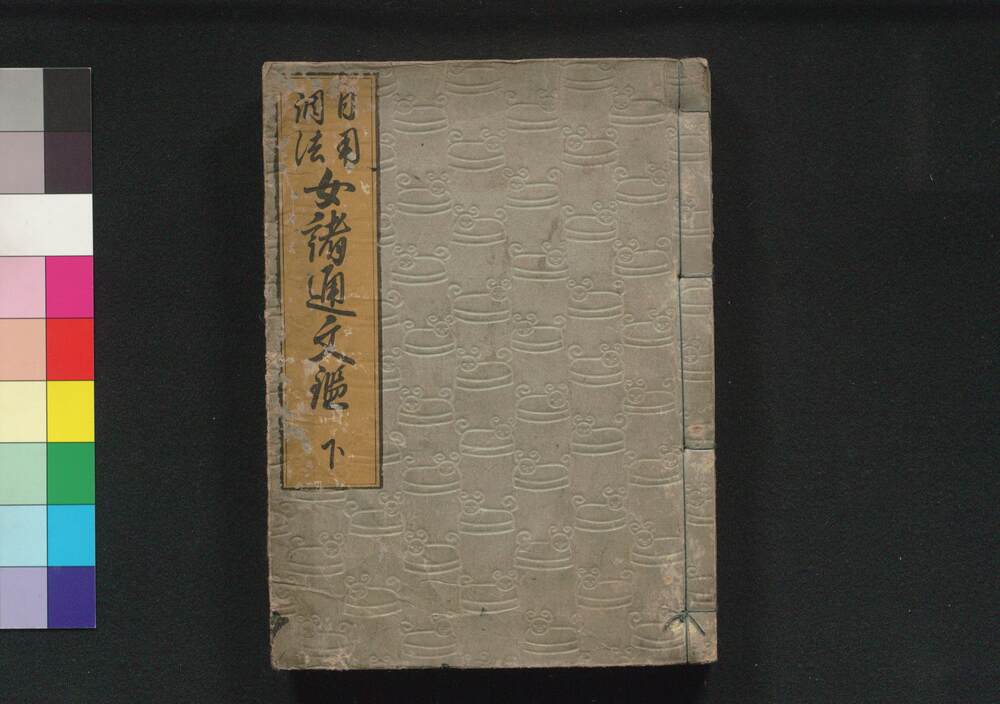 日用
調法
女諸通文鑑
下